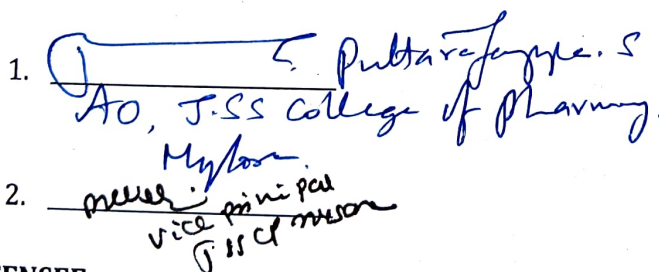 1. Puttarajappa. S
AO, J.SS College of pharmacy,
Mysore.
2.
vice principal
JSSCP mysore